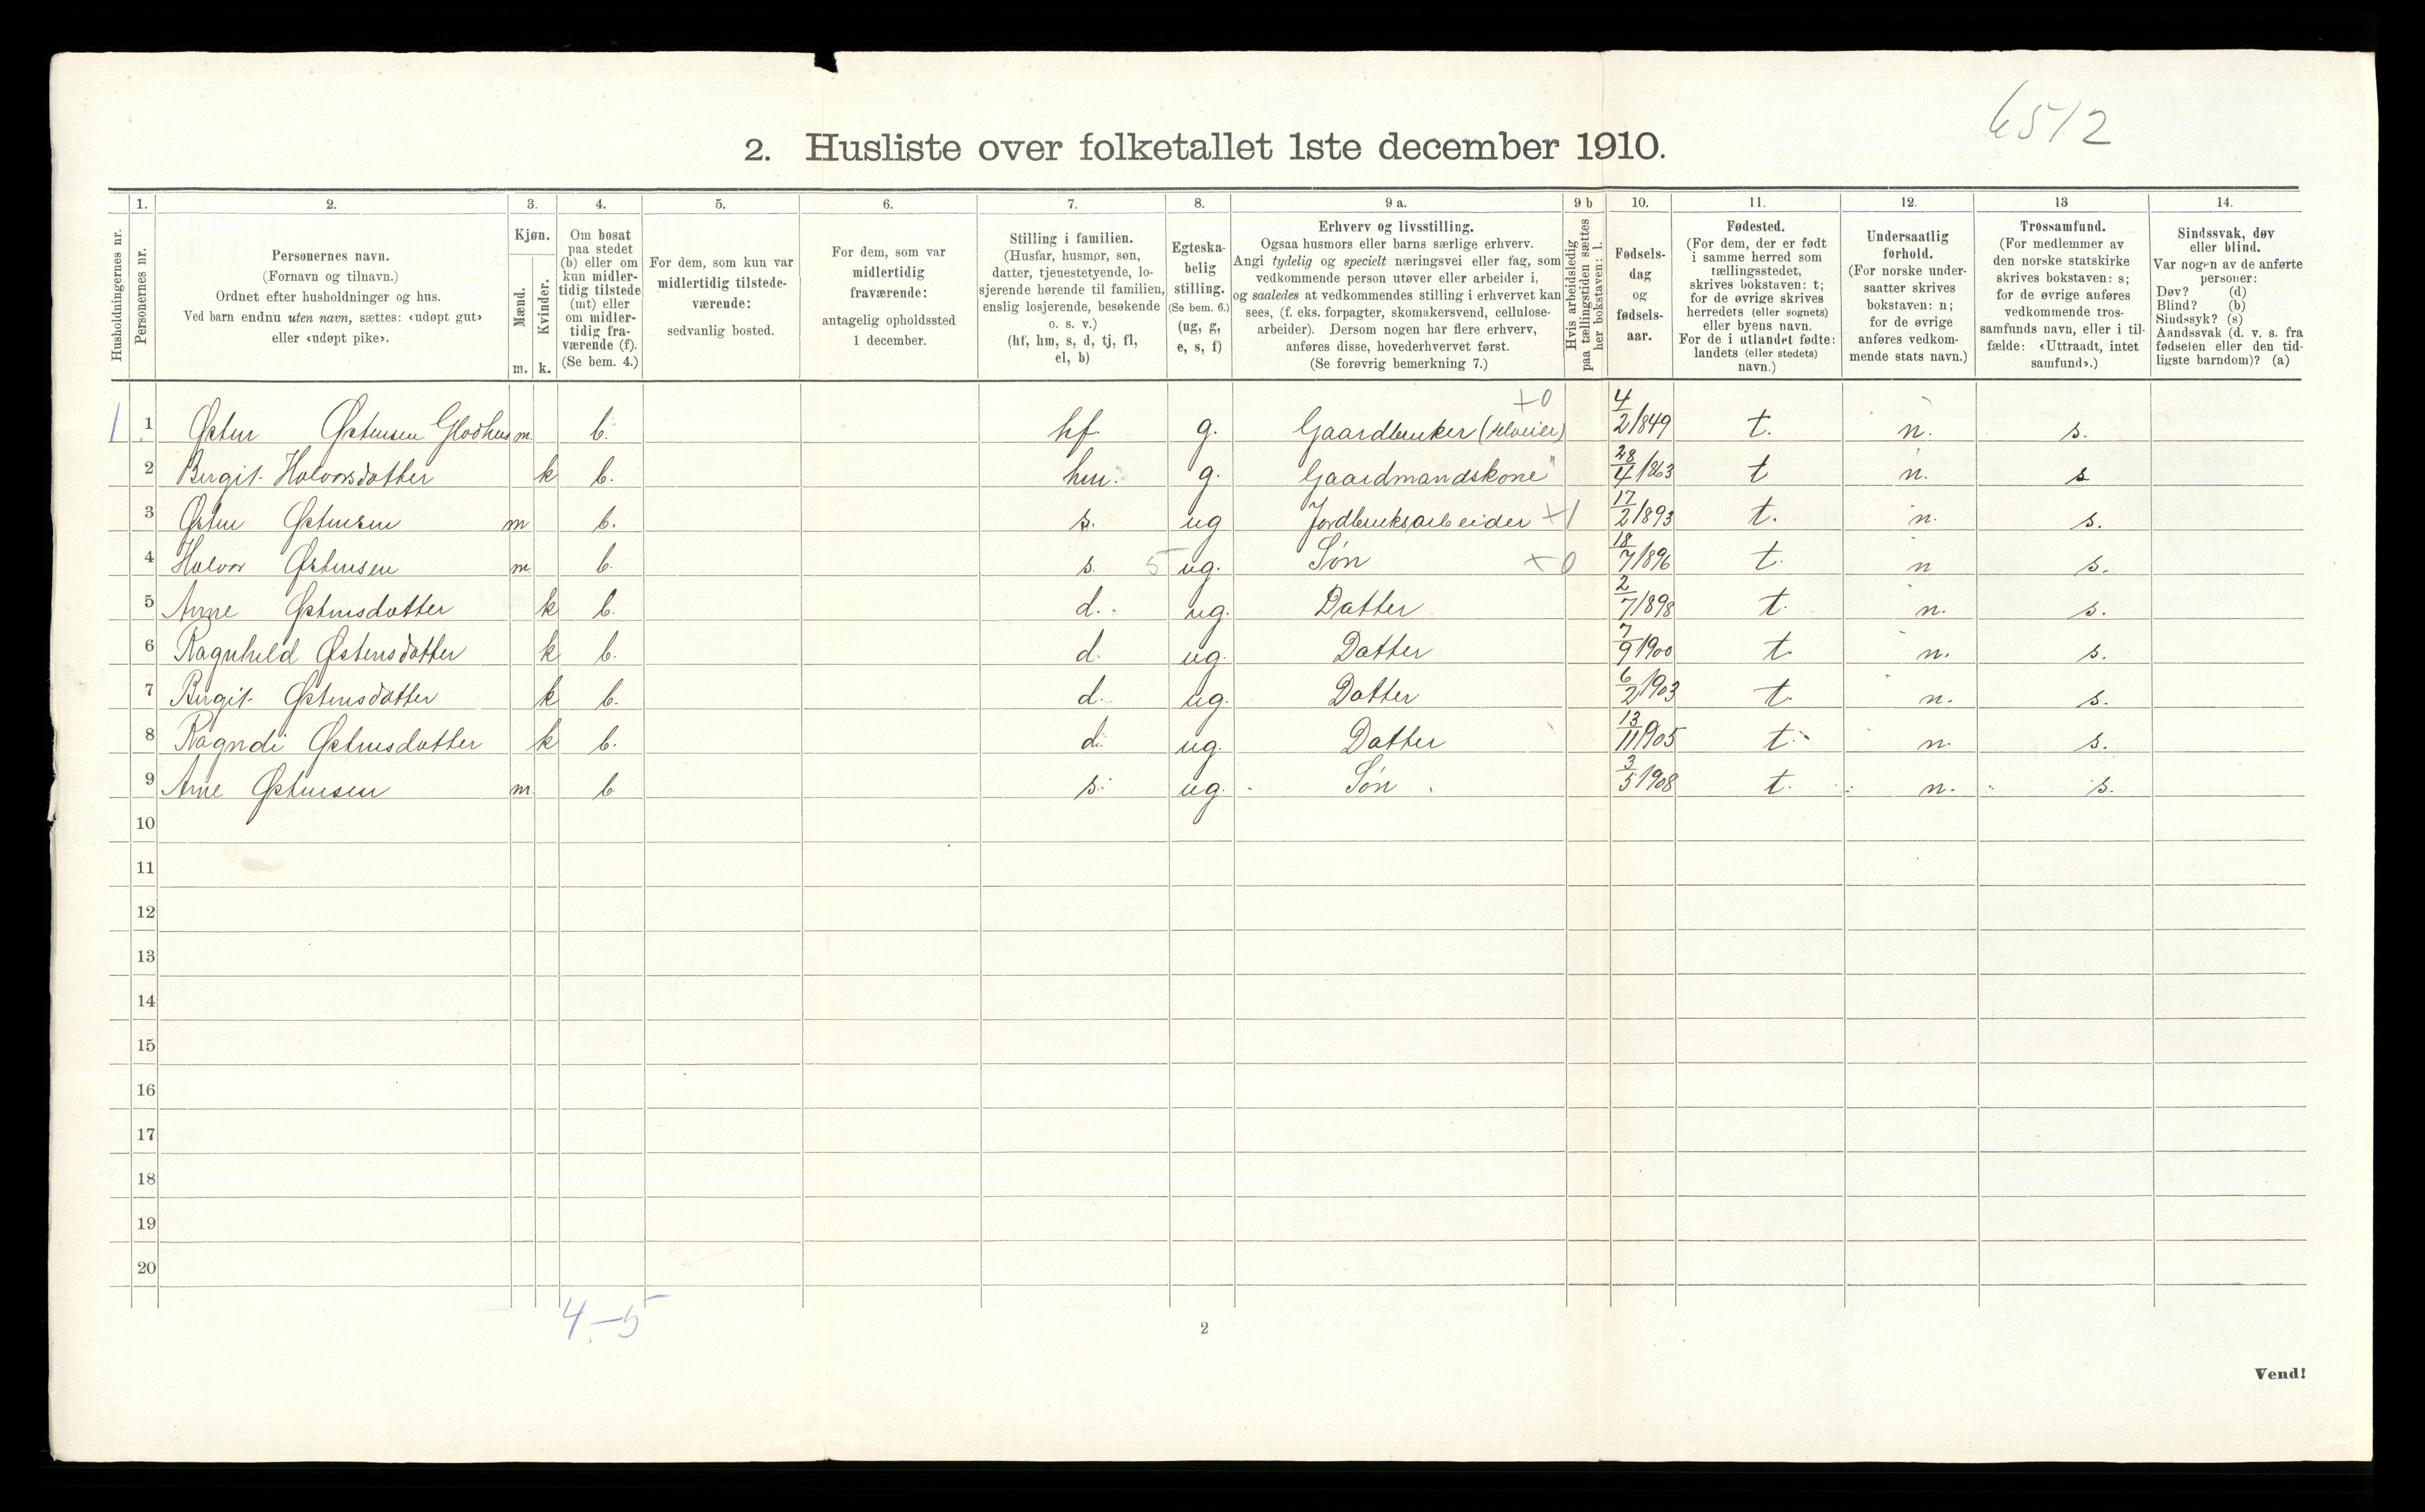 6512
2. Husliste over folketallet 1ste december 1910.
1. 2. 3. 4. 5. 6. 7. 8. 9 a. 9 b 10. 11. 12. 13 14.
Husholdningernes nr.
Personernes nr.
Personernes navn.
(Fornavn og tilnavn.)
Ordnet efter husholdninger og hus.
Ved barn endnu uten navn, sættes: «udøpt gut»
eller «udøpt pike».
Kjøn.
Mænd.
Kvinder.
m. k.
Om bosat
paa stedet
(b) eller om
kun midler-
tidig tilstede
(mt) eller
om midler-
tidig fra-
værende (f).
(Se bem. 4.)
For dem, som kun var
midlertidig tilstede-
værende:
sedvanlig bosted.
For dem, som var
midlertidig
fraværende:
antagelig opholdssted
1 december.
Stilling i familien.
(Husfar, husmor, søn,
datter, tjenestetyende, lo-
sjerende hørende til familien,
enslig losjerende, besøkende
o. s. v.)
(hf, hm, s, d, tj, fl,
el, b)
Egteska-
belig
stilling.
(Se bem. 6.)
(ug, g,
e, s, f)
Erhverv og livsstilling.
Ogsaa husmors eller barns særlige erhverv.
Angi tydelig og specielt næringsvei eller fag, som
vedkommende person utøver eller arbeider i,
og saaledes at vedkommendes stilling i erhvervet kan
sees, (f. eks. forpagter, skomakersvend, cellulose-
arbeider). Dersom nogen har flere erhverv,
anføres disse, hovederhvervet først.
(Se forøvrig bemerkning 7.)
Hvis arbeidsledig
paa tællingstiden sættes
her bokstaven: l.
Fødsels-
dag
og
fødsels-
aar.
Fødested.
(For dem, der er født
i samme herred som
tællingsstedet,
skrives bokstaven: t;
for de øvrige skrives
herredets (eller sognets)
eller byens navn.
For de i utlandet fødte:
landets (eller stedets)
navn.)
Undersaatlig
forhold.
(For norske under-
saatter skrives
bokstaven: n;
for de øvrige
anføres vedkom-
mende stats navn.)
Trossamfund.
(For medlemmer av
den norske statskirke
skrives bokstaven: s;
for de øvrige anføres
vedkommende tros-
samfunds navn, eller i til-
fælde: «Uttraadt, intet
samfund».)
Sindssvak, døv
eller blind.
Var nogen av de anførte
personer:
Døv? (d)
Blind? (b)
Sindssyk? (s)
Aandssvak (d. v. s. fra
fødselen eller den tid-
ligste barndom)? (a)
+0
1 1 Østen Østensen Glodhus m. b. hf g. Gaardbruker (selveier) 4/2 1849 t. n. s.
2 Birgit Halvorsdatter k b. hm. g. Gaardmandskone" 28/4 1863 t n. s
3 Østen Østensen m b. s. ug Jordbruksarbeider +1 17/2 1893 t. n. s.
4 Halvor Østensen m. b. s. 5 ug. Søn +0 18/7 1896 t. n s.
5 Anne Østensdatter k b. d. ug. Datter 2/7 1898 t. n. s.
6 Ragnhild Østensdatter k b. d. ug. Datter 7/9 1900 t. n. s.
7 Birgit Østensdatter k b. d. ug. Datter 6/2 1903 t. n. s.
8 Ragndi Østensdatter k b. d. ug. Datter 13/11 1905 t. n. s.
9 Arne Østensen m. b s. ug. Søn 3/5 1908 t. n. s.
10
11
12
13
14
15
16
17
18
19
20
4-5
2
Vend!